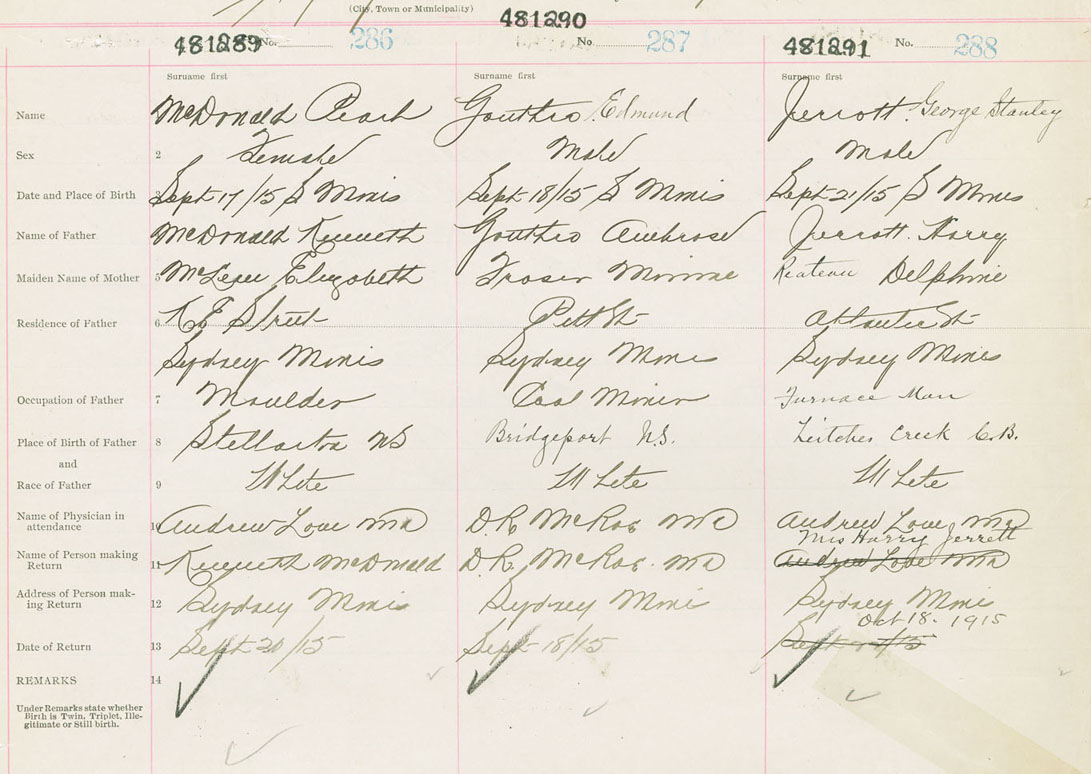 (City, Town or Municipality)
481289 No. 286 481290 No. 287 481291 No. 288
Surname first Surname first Surname first
Name McDonald Pearl Gouthro Edmund Jerrott George Stanley
Sex 2 Female Male Male
Date and Place of Birth 3 Sept 17/15 S Mines Sept 18/15 S Mines Sept 21/15 S Mines
Name of Father McDonald Kenneth Gouthro Ambrose Jerrott Harry
Maiden Name of Mother 5 McLean Elizabeth Fraser Minnie Delphine
Residence of Father 6 Street Pitt St Atlantic St
Sydney Mines Sydney Mines Sydney Mines
Occupation of Father 7 Moulder Coal Miner Furnace Man
Place of Birth of Father 8 Stellarton NS Bridgeport N.S. Leitches Creek C.B.
and
Race of Father 9 White White White
Name of Physician in
attendance 10 Andrew Love MD D.R. McRae MD Andrew Love MD
Mrs Harry Jerrett
Name of Person making
Return 11 Kenneth McDonald D.R. McRae MD Andrew Love MD
Address of Person mak-
ing Return 12 Sydney Mines Sydney Mines Sydney Mines
Oct 18. 1915
Date of Return 13 Sept 20/15 Sept 18/15 Sept
REMARKS 14
Under Remarks state whether
Birth is Twin, Triplet, Ille-
gitimate or Still birth.